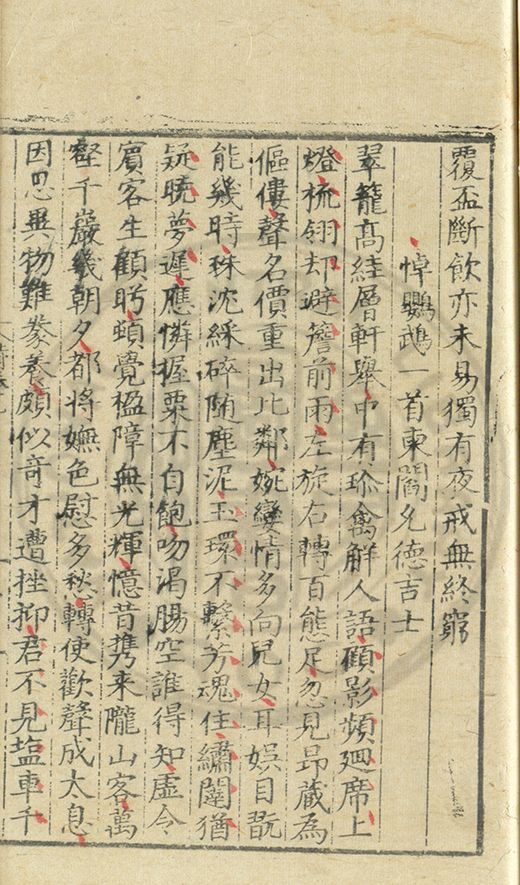 覆盃斷飲亦未易獨有夜戒無終窮
悼鸚鵡一首柬閻允德吉士
翠籠高絓層軒舉中有珍禽解人語顧影頻廻席上
燈梳翎却避簷前雨左旋右轉百態足忽見昂藏為
傴僂聲名價重出比鄰婉孌情多向兒女耳娛目翫
能幾時珠沈綵碎随塵泥玉環不繫芳魂住繡闥猶
疑曉夢遲應憐握粟不自飽吻渴腸空誰得知虛令
賔客生顧眄頓覺楹障無光輝憶昔携来隴山客萬
壑千巖幾朝夕都將嫵色慰多愁轉使歡聲成太息
因思異物難豢養頗似竒才遭挫抑君不見塩車千